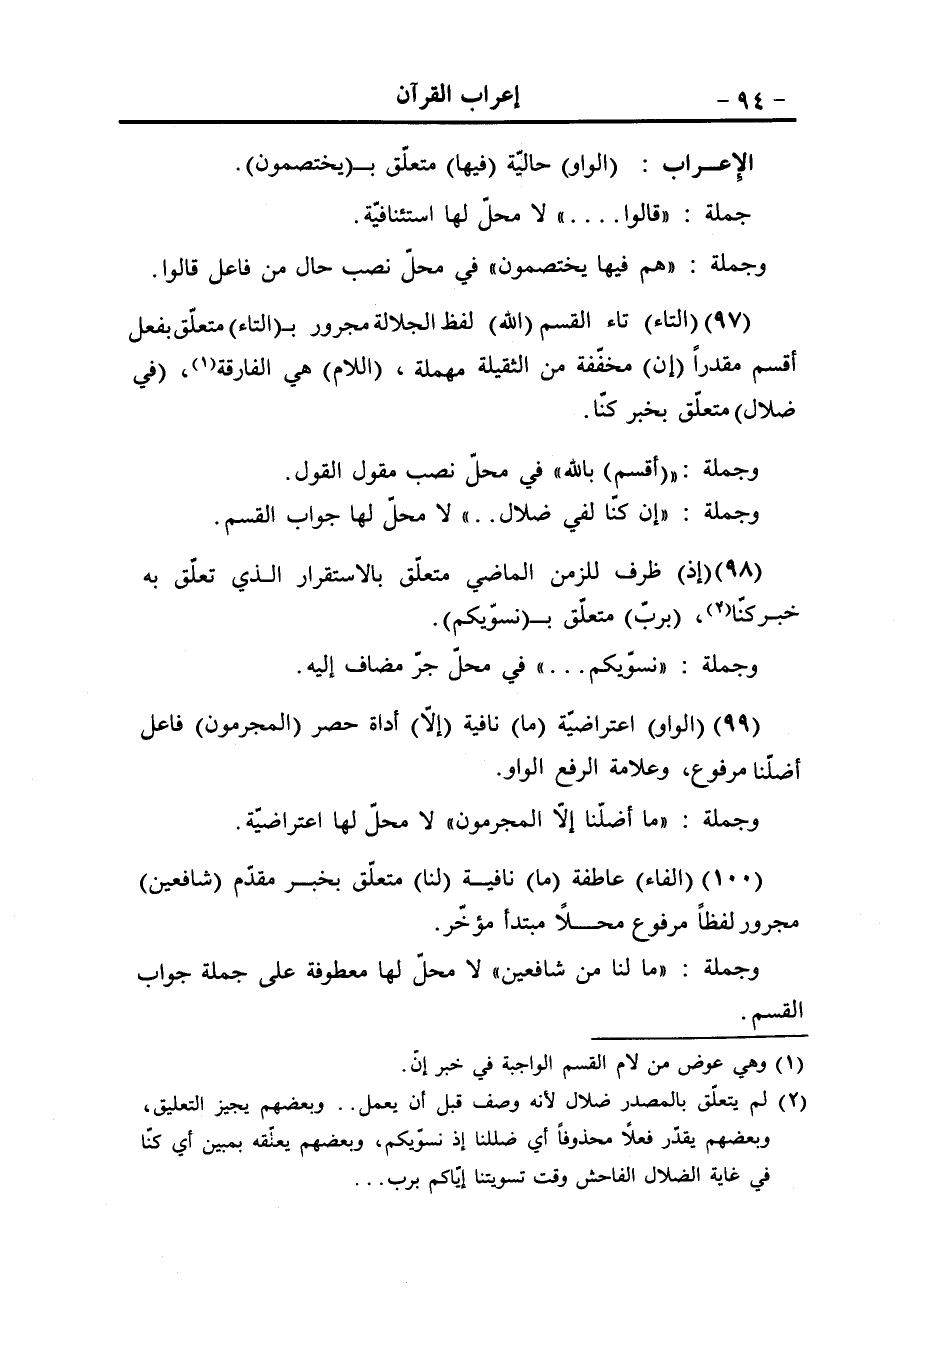 - ٩٤ - إعراب القرآن
الإعـراب : (الواو) حاليّة (فيها) متعلّق بـ(يختصمون).
جملة : «قالوا....» لا محلّ لها استئنافيّة.
وجملة : «هم فيها يختصمون» في محلّ نصب حال من فاعل قالوا.
(٩٧) (التاء) تاء القسم (الله) لفظ الجلالة مجرور بـ(التاء) متعلّق بفعل
أقسم مقدراً (إن) مخفّفة من الثقيلة مهملة ، (اللام) هي الفارقة(١)، (في
ضلال) متعلّق بخبر كنّا.
وجملة : «(أقسم) بالله» في محلّ نصب مقول القول.
وجملة : «إن كنّا لفي ضلال..» لا محلّ لها جواب القسم.
(٩٨) (إذ) ظرف للزمن الماضي متعلّق بالاستقرار الـذي تعلّق به
خبـر كنّا(٢)، (بربّ) متعلّق بـ(نسوّيكم).
وجملة : «نسوّيكم...» في محلّ جرّ مضاف إليه.
(٩٩) (الواو) اعتراضيّة (ما) نافية (إلّا) أداة حصر (المجرمون) فاعل
أضلّنا مرفوع، وعلامة الرفع الواو.
وجملة : «ما أضلّنا إلّا المجرمون» لا محلّ لها اعتراضيّة.
(١٠٠) (الفاء) عاطفة (ما) نافيـة (لنا) متعلّق بخبـر مقدّم (شافعين)
مجرور لفظاً مرفوع محـلاً مبتدأ مؤخّر.
وجملة : «ما لنا من شافعين» لا محلّ لها معطوفة على جملة جواب
القسم.
(١) وهي عوض من لام القسم الواجبة في خبر إنّ.
(٢) لم يتعلّق بالمصدر ضلال لأنه وصف قبل أن يعمل.. وبعضهم يجيز التعليق،
وبعضهم يقدّر فعلًا محذوفاً أي ضللنا إذ نسوّيكم، وبعضهم يعلّقه بمبين أي كنّا
في غاية الضلال الفاحش وقت تسويتنا إيّاكم برب...